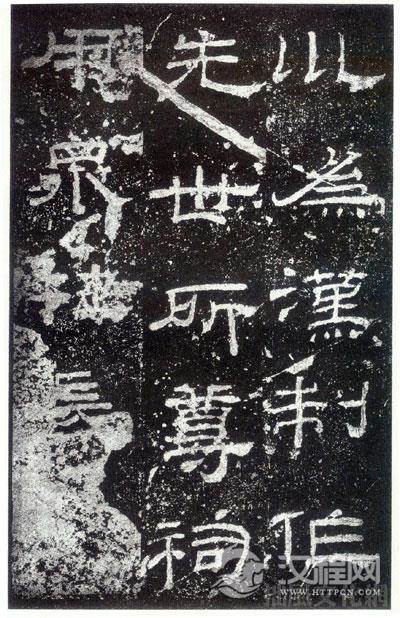 以為漢制作
先世所尊祠
用眾牲長
汉程网
WWW.HTTPCN.COM